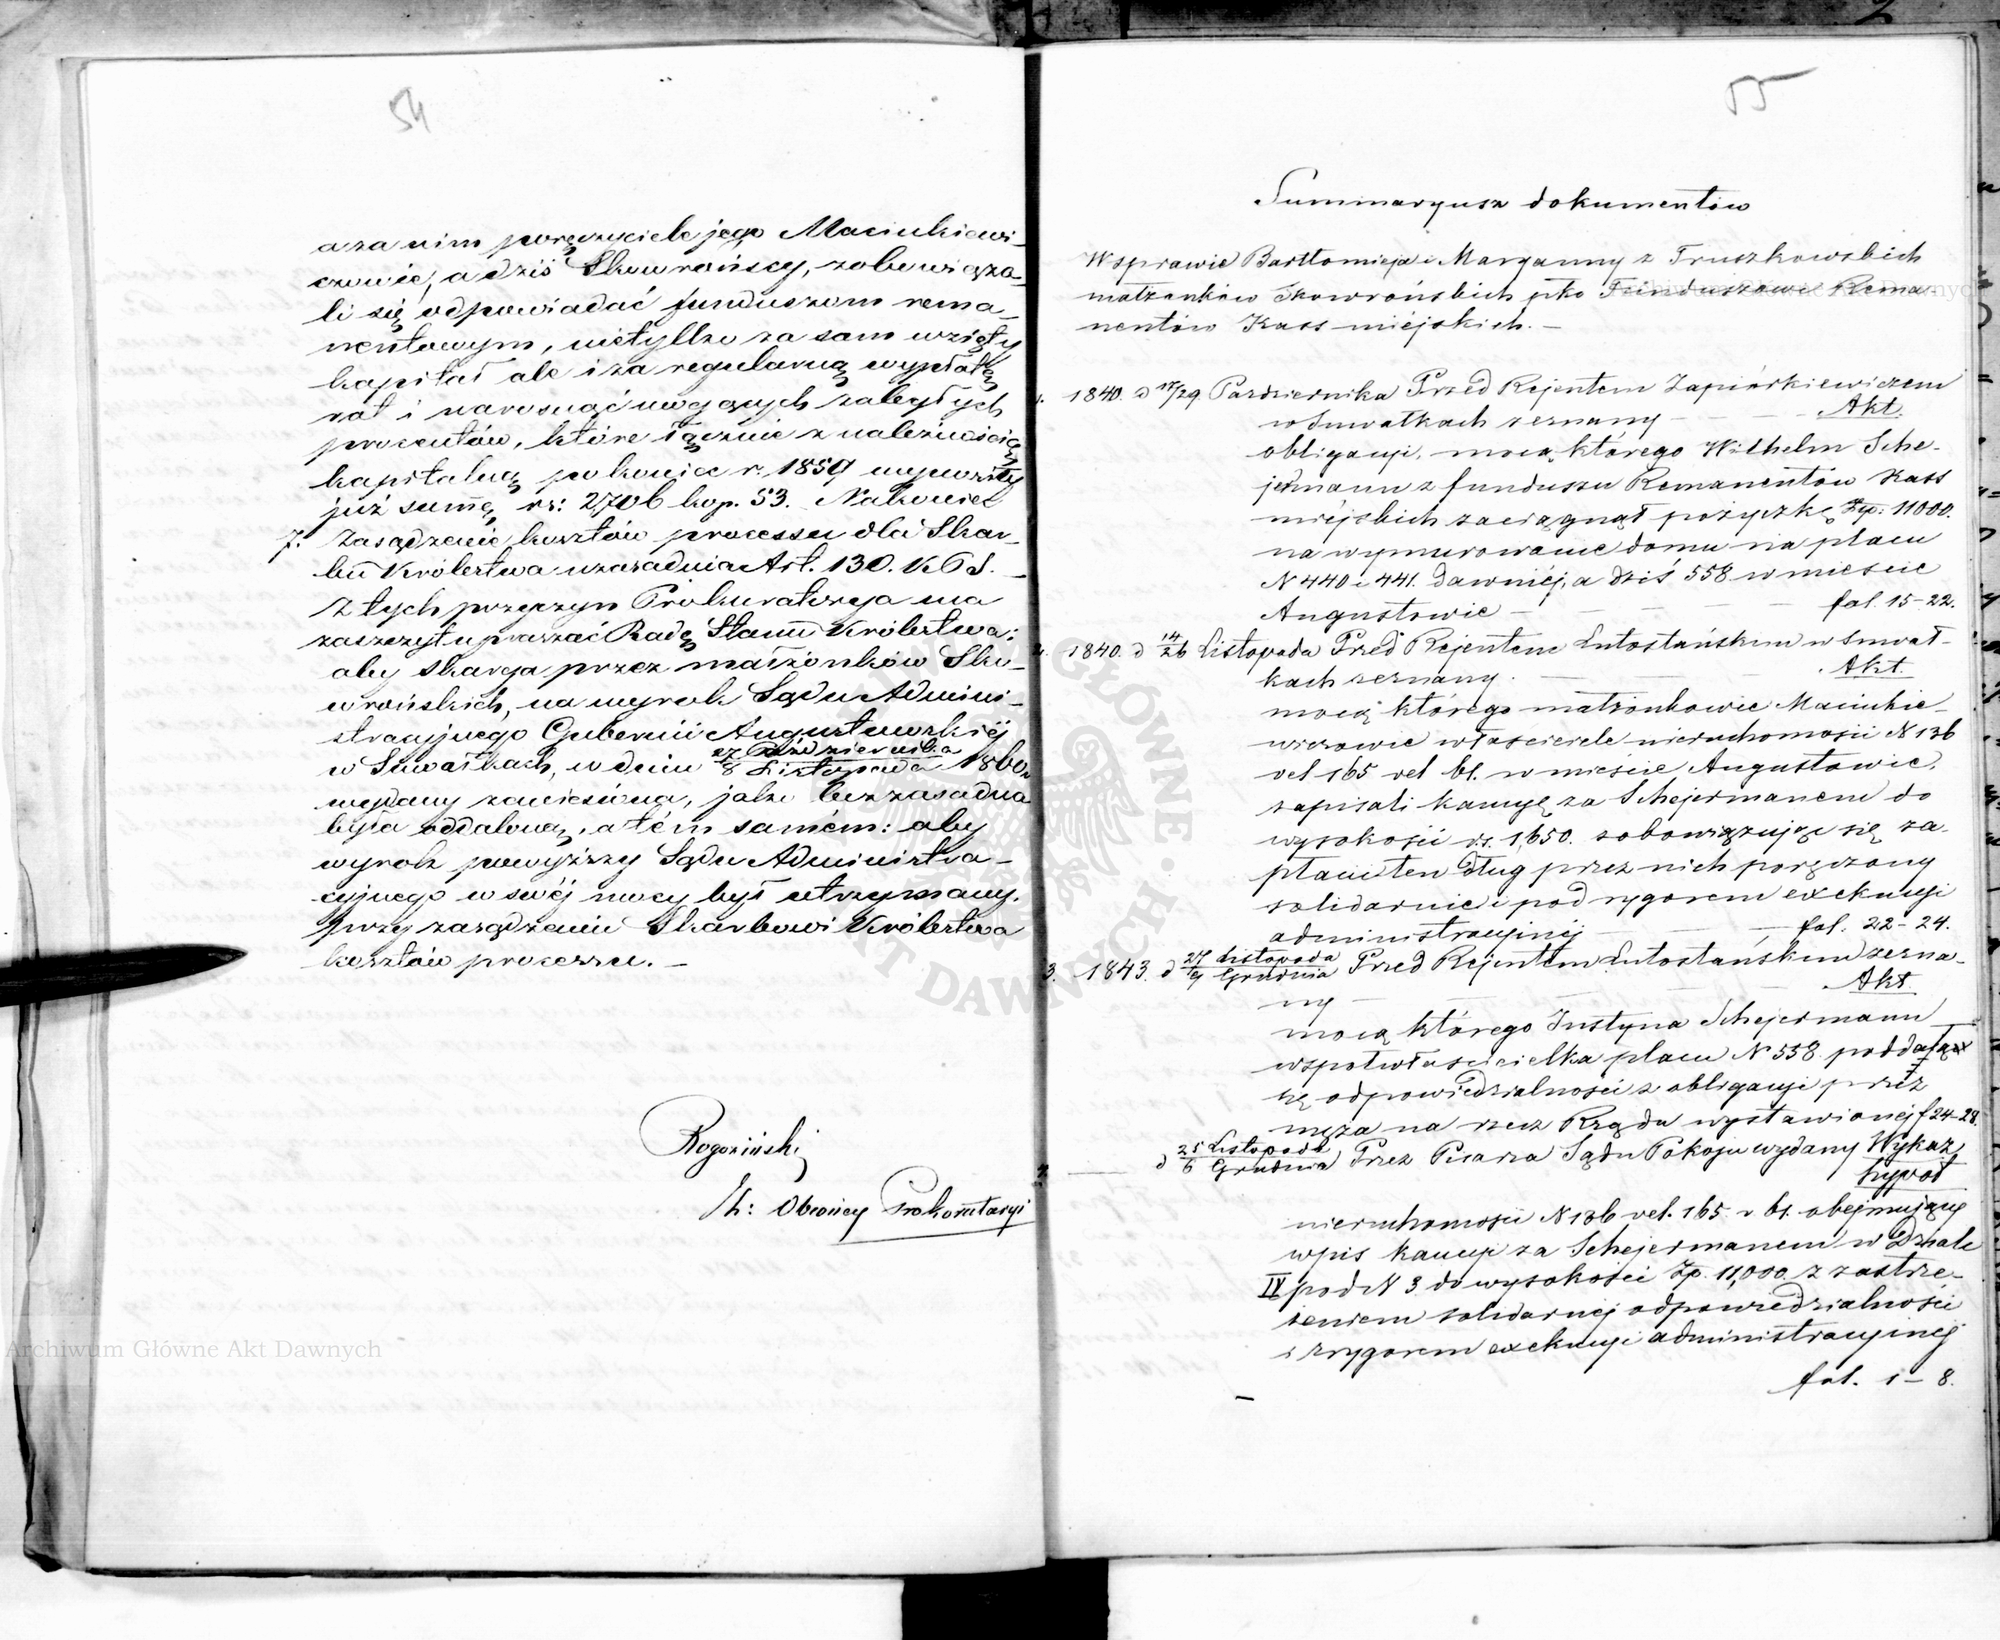 54
a za nim poręczyciele jego Maciukiewi-
czowie, a dziś Skowrońscy, zobowiąza-
li się odpowiadać funduszom rema-
nentowym, nietylko za sam wzięty
kapitał ale i za regularną wypłatę
rat i narosnąć mogących zaległych
procentów, które łącznie z należnością
kapitalną po koniec r. 1859 wynosiły
już summę rs: 2,706 kop. 53. Nakoniec
7. Zasądzenie kosztów processu dla Skar-
bu Królestwa uzasadnia Art. 130. K.P.S. –
Z tych przyczyn Prokuratorya ma
zaszczyt upraszać Radę Stanu Królestwa:
aby skarga przez małżonków Sko-
wrońskich, na wyrok Sądu Admini-
stracyjnego Gubernii Augustowskiéj
w Suwałkach, w dniu 27 Października / 8 Listopada 1860 r.
wydany zaniesiona, jako bezzasadna
była oddaloną, a tém samém: aby
wyrok powyższy Sądu Administra-
cyjnego w swéj mocy był utrzymany,
przy zasądzeniu Skarbowi Królestwa
kosztów processu. –
Rogoziński
Obrońcy Prokuratoryi
55
Summaryusz dokumentów
W sprawie Bartłomieja i Maryanny z Truszkowskich
małżonków Skowrońskich pko Funduszowi Rema-
nentów Kass miéjskich. –
1. 1840. d 17/29 Pazdziernika Przed Rejentem Zapiórkiewiczem
w Suwałkach zeznany – – – Akt.
obligacyi, mocą którego Wilhelm Sche-
jermann z funduszu Remanentów Kass
miéjskich zaciągnął pożyczkę Złp: 11000.
na wymurowanie domu na placu
N 440 i 441. dawniéj, a dziś 558 w miescie
Augustowie – – – – fol. 15-22.
2. 1840. d 14/26 Listopada Przed Rejentem Lutostańskim w Suwał-
kach zeznany. – – – Akt.
mocą którego małżonkowie Maciukie-
wiczowie właściciele nieruchomości N 136
vel 165 vel bl. w mieście Augustowie,
zapisali kaucyę za Schejermanem do
wysokości rs. 1,650. zobowiązując się za-
płacić ten dług przez nich poręczony
solidarnie i pod rygorem exekucyi
administracyjnéj – – – fol. 22-24.
3. 1843. d 27 Listopada / 9 Grudnia Przed Rejentem Lutostańskim zezna-
ny – – – – Akt.
mocą którego Justyna Schejermann
wspołwłascicielka placu N 558. poddała
się odpowiedzialności z obligacyi przez
męża na rzecz Rządu wystawionéj f 24-28.
d 25 Listopada / 6 Grudnia Przez Pisarza Sądu Pokoju wydany Wykaz
hypot
nieruchomości N 136 vel. 165. v bl. obejmujący
wpis kaucyi za Schejermanem w Dziale
IV pod N 3 do wysokości Zp. 11,000. z zastrze-
żeniem solidarnéj odpowiedzialności
i rygorem exekucyi administracyjnéj
fol. 1-8.
Archiwum Główne Akt Dawnych